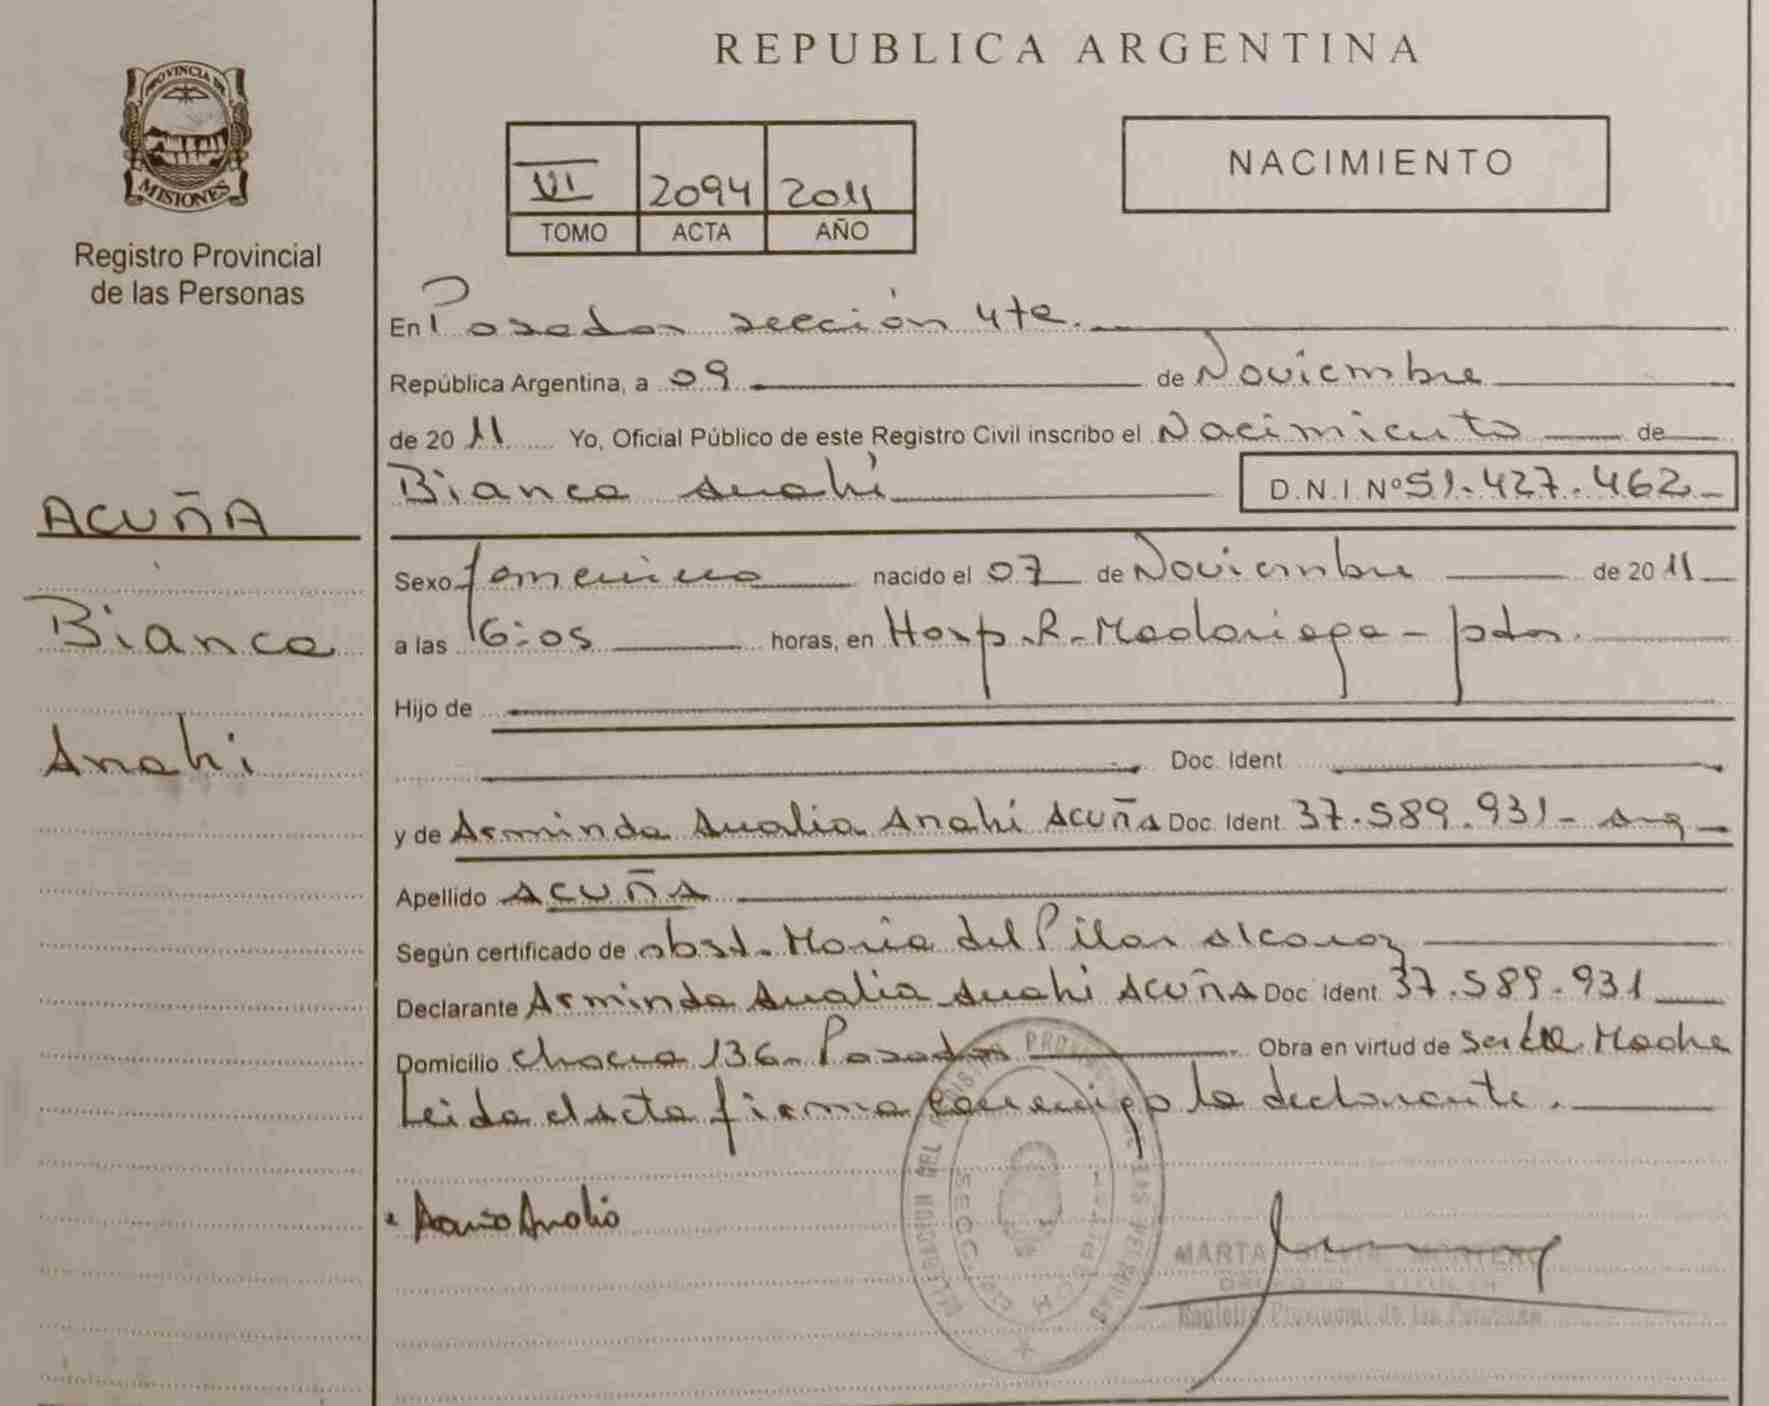 REPUBLICA ARGENTINA
PROVINCIA DE
MISIONES
Registro Provincial
de las Personas
VI 2094 2011
TOMO ACTA AÑO
NACIMIENTO
ACUÑA
Bianca
Anahi
En Posadas sección 4ta.
República Argentina, a 09 de Noviembre
de 2011 Yo, Oficial Público de este Registro Civil inscribo el Nacimiento de
Bianca Anahí D.N.I Nº 51.427.462
Sexo femenino nacido el 07 de Noviembre de 2011
a las 16:05 horas, en Hosp. R. Madariaga - pdas.
Hijo de
Doc. Ident
y de Arminda Analia Anahí ACUÑA Doc. Ident. 37.589.931 - Arg
Apellido ACUÑA
Según certificado de obst. Maria del Pilar Alcaraz
Declarante Arminda Analia Anahi ACUÑA Doc Ident 37.589.931
Domicilio Chacra 136 - Posadas Obra en virtud de ser la Madre
Leida el acta firma conmigo la declarante.
MARTA MONTERO
Registro Provincial de las Personas